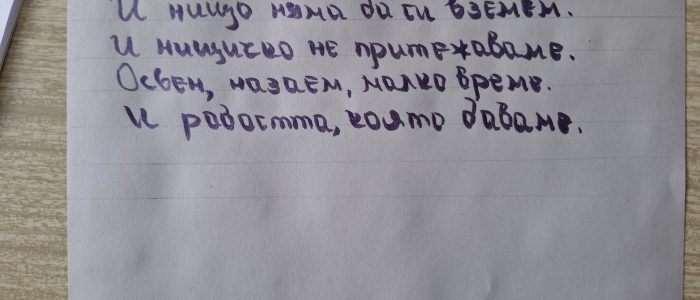 И нищо няма да си вземем.
И нищичко не притежаваме.
Освен, назаем, малко време.
И радостта, която даваме.